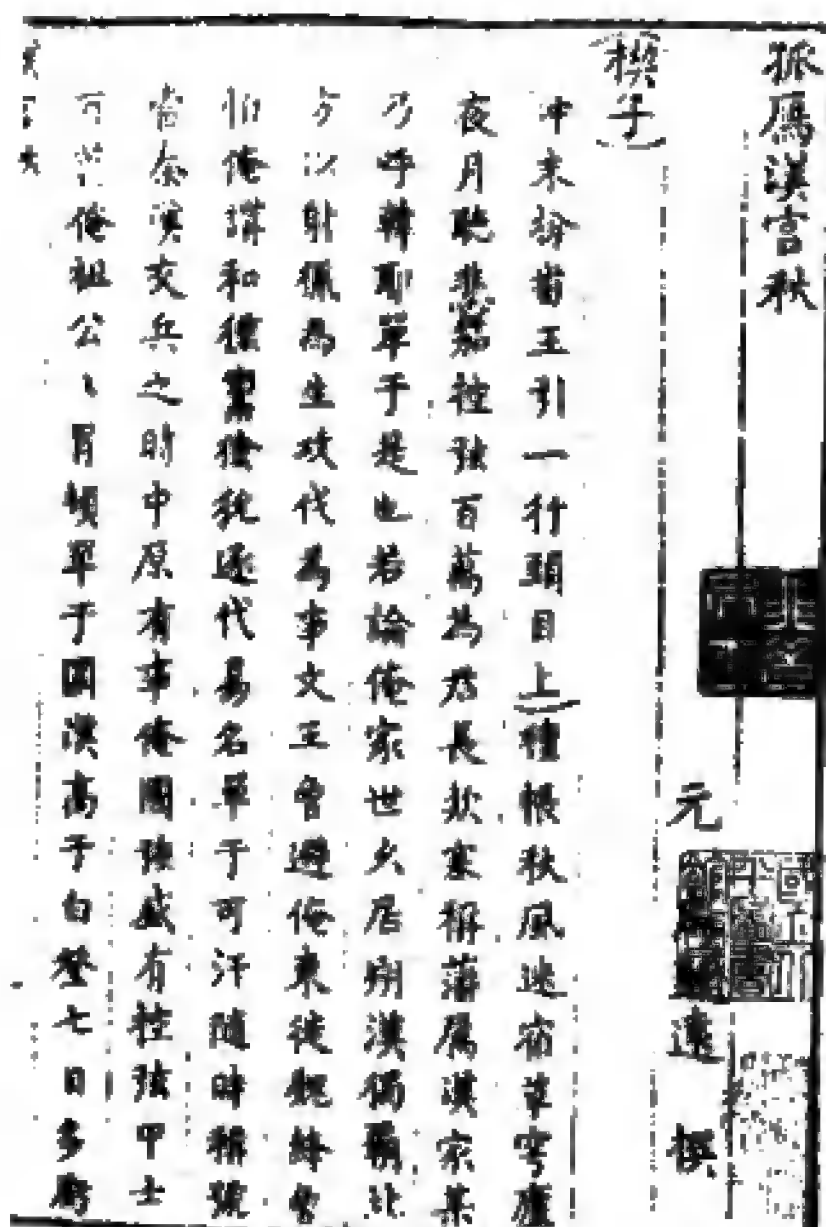 孤鴈漢宮秋
元 馬致遠 撰
楔子
冲末扮番王引一行頭目上氊帳秋風迷宿草穹廬
夜月聽悲笳控弦百萬為君長欵塞稱藩屬漢家某
乃呼韓耶單于是也若論俺家世久居朔漠獨覇北
方以射獵為生攻伐為事文王曾避俺東徙魏絳曾
怕俺講和獯鬻獫狁逐代易名單于可汗隨時稱號
當秦漢交兵之時中原有事俺國強盛有控弦甲士
百萬俺祖公〻冒頓單于圍漢高于白登七日多虧
漢宮秋